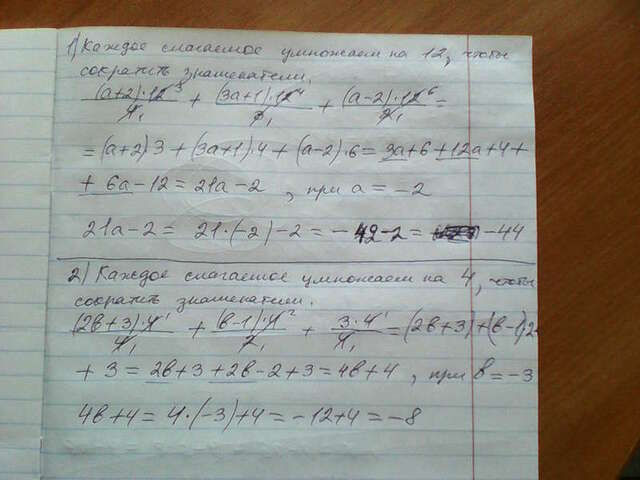 1) Каждое слагаемое умножаем на 12, чтобы
сократить знаменатели.
(a+2)·12³/4₁ + (3a+1)·12⁴/3₁ + (a-2)·12⁶/2₁ =
= (a+2)3 + (3a+1)·4 + (a-2)·6 = 3a+6+12a+4+
+ 6a-12 = 21a-2, при a = -2
21a-2 = 21·(-2)-2 = -42-2 = -44
2) Каждое слагаемое умножаем на 4, чтобы
сократить знаменатели.
(2b+3)·4¹/4₁ + (b-1)·4²/2₁ + 3·4¹/4₁ = (2b+3)+(b-1)2
+ 3 = 2b+3+2b-2+3 = 4b+4, при b = -3
4b+4 = 4·(-3)+4 = -12+4 = -8